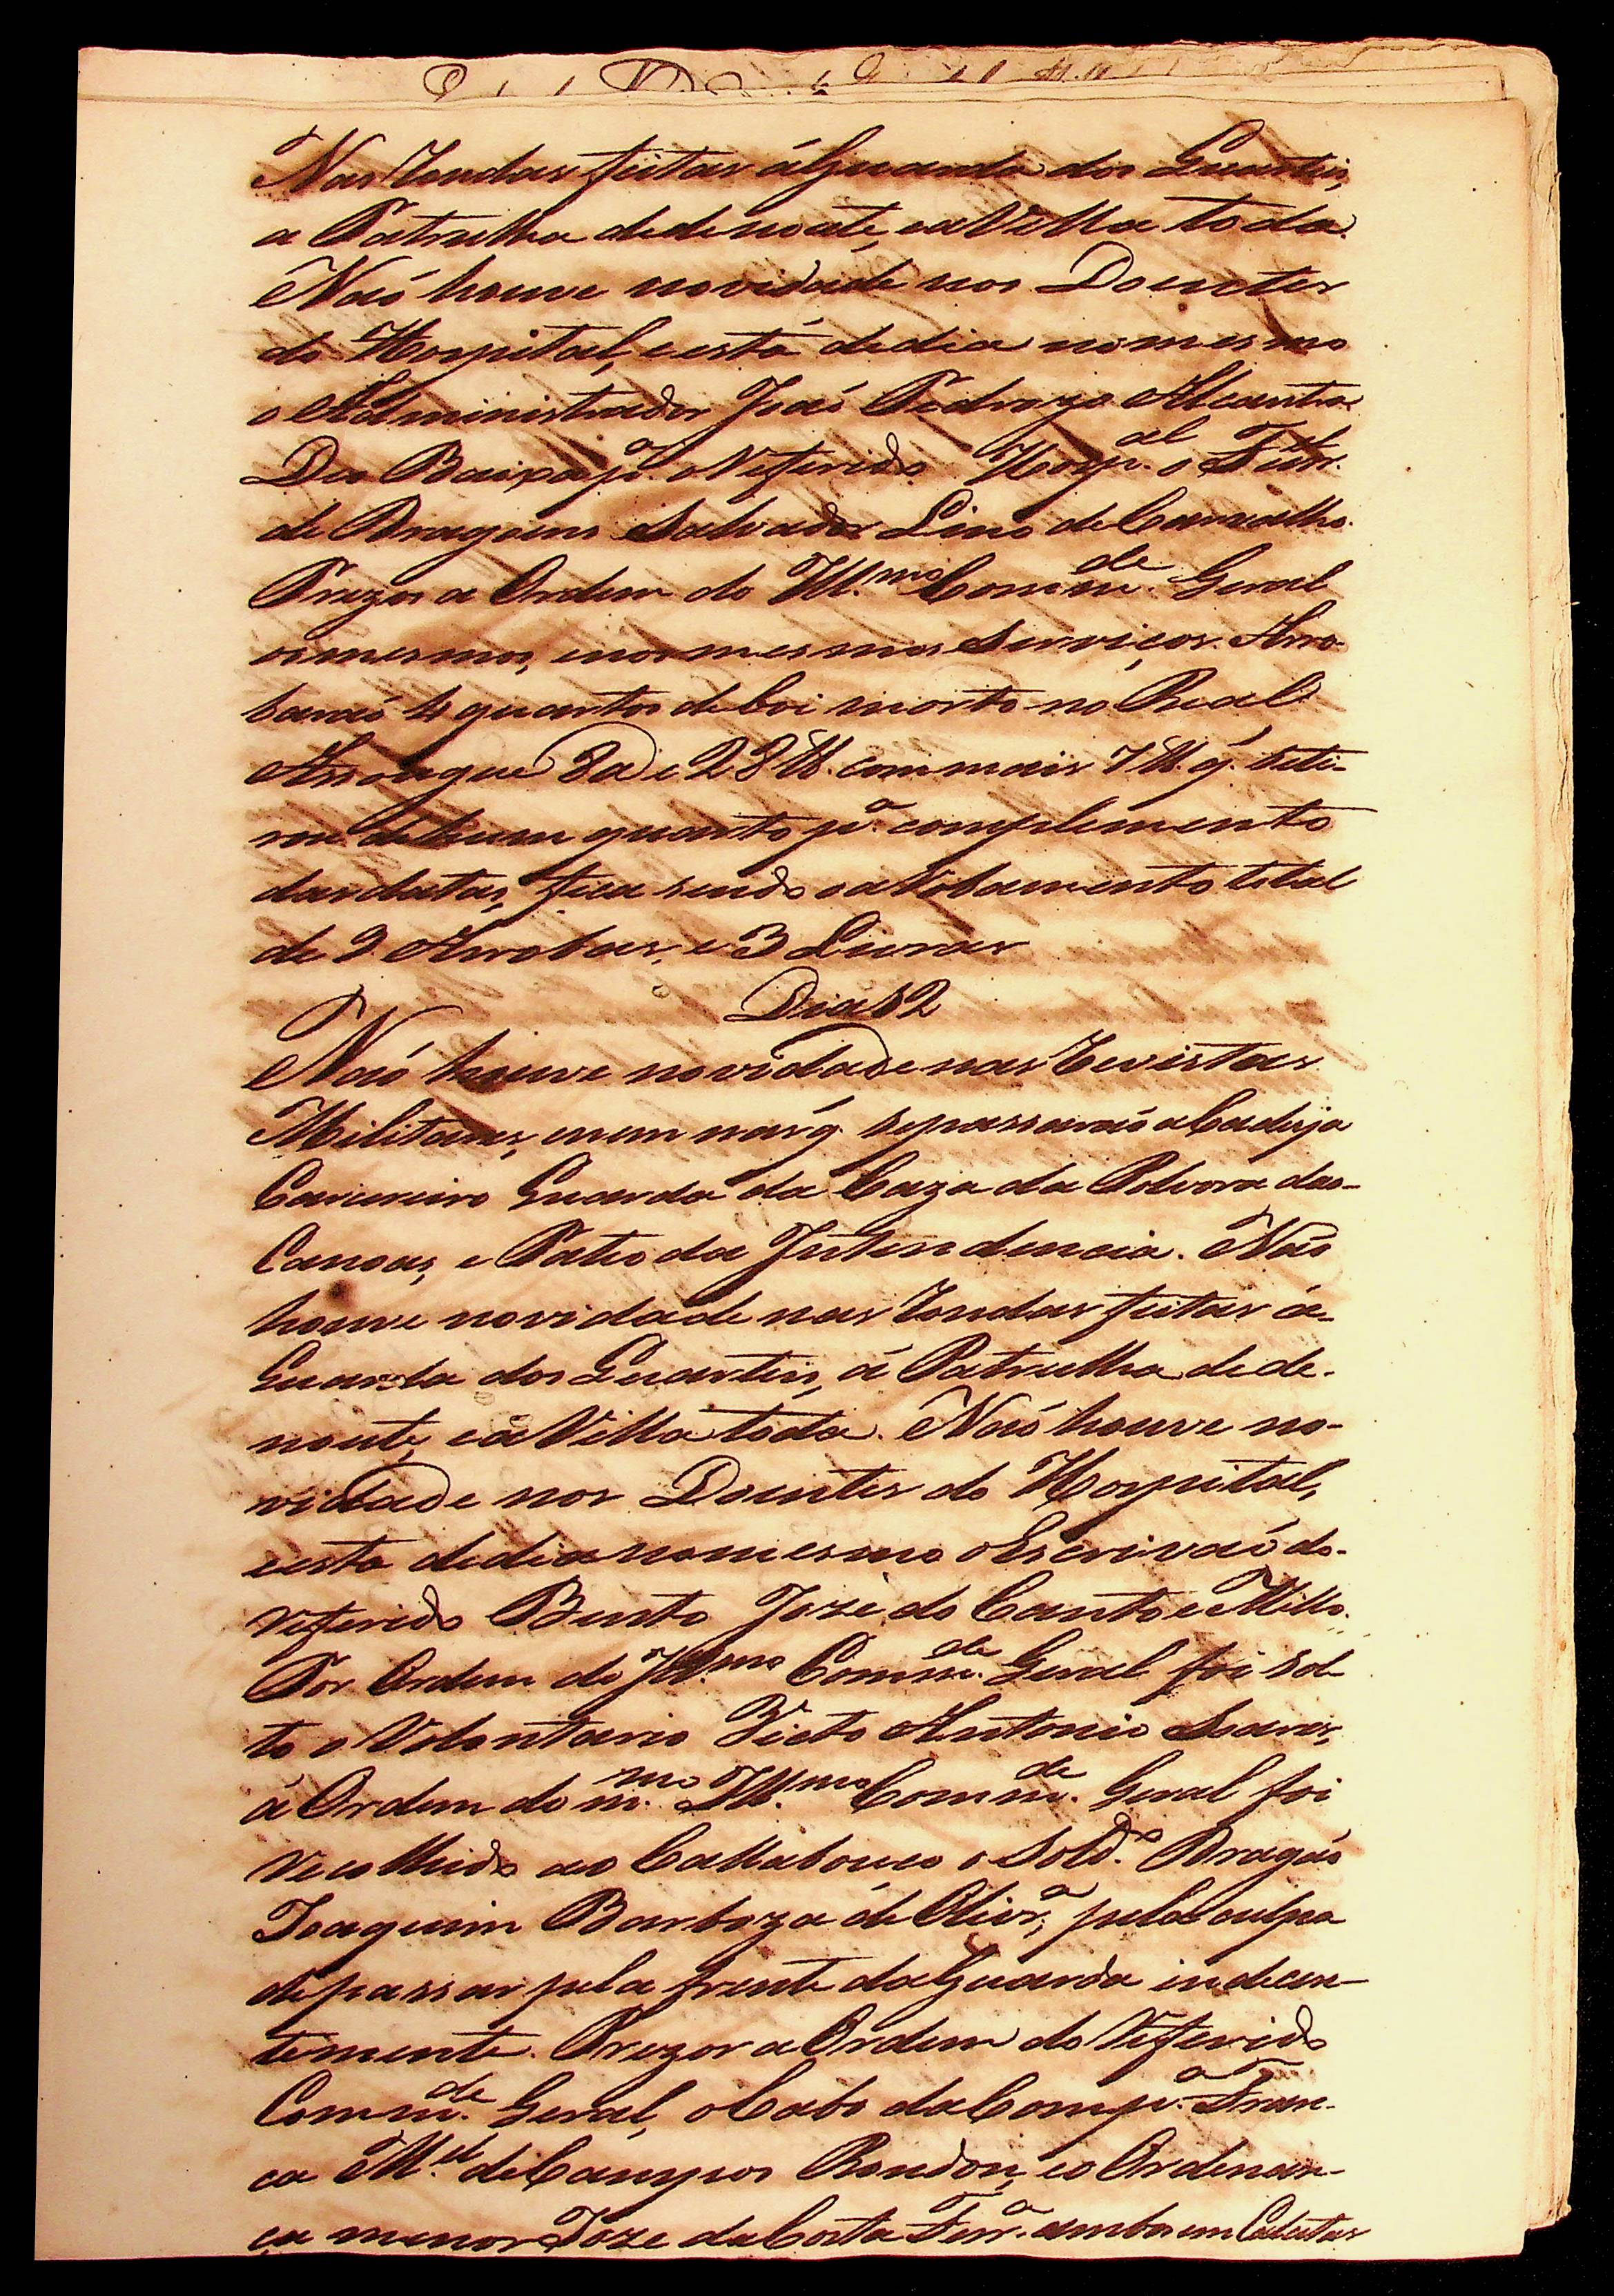 Nas Rondas feitas á Guarda dos Quarteis,
a Patrulha de de noute, e a Villa toda.
Naõ houve novidade nos Doentes
do Hospital, e está de dia no mesmo
o Administrador Joaõ Pedrozo Alcantra
Deo Baixa p.ª o referido Hosp.al o Fur.el
de Dragoens Salvador Lino de Carvalho.
Prezos a Ordem do Ill.mo Comm.de Geral
os mesmos, e nos mesmos Serviços. Arro-
baraõ 4 quartos de boi morto no Real
Assougue 8 @ e 28 lb. com mais 7 lb. q. se ti-
rou de hum quarto p.ª complemento
das datas, fica sendo o arrobamento total
de 9 Arrobas, e 3 Livras
Dia 12
Naõ houve novidade nas Revistas
Militares, e nem nas q. se passaraõ a Cadeja
Carcereiro Guarda da Caza da Polvora das
Canoas, e Pateo da Intendencia. Naõ
houve novidade nas Rondas feitas á
Guarda dos Quarteis, á Patrulha de de
noute, e á Villa toda. Naõ houve no-
vidade nos Doentes do Hospital,
e esta de dia no mesmo o Escrivaõ do
referido Bento Joze do Canto e Mello.
Por Ordem do Ill.mo Comm.de Geral foi sol
to o Volontario Antonio Soares,
á Ordem do m.mo Ill.mo Comm.de Geral foi
recolhido ao Callabouco o Sold.º Dragaõ
Joaquim Barboza de Olivr.ª, pela culpa
de passar pela frente da Guarda indecen-
temente. Prezos a Ordem do referido
Comm.de Geral, o Cabo da Comp.ª Fran-
ca M.el de Campos Rondon, e o Ordenan-
ca menor Joze da Costa Ferr.ª ambos em